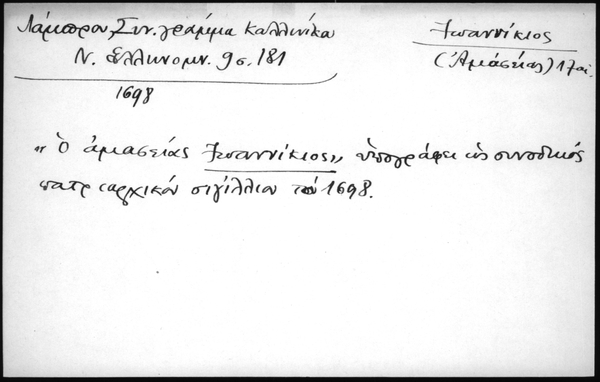 Λάμπρου, Συν.γράμμα Καλλινίκα
Ν. Ελληνομν. 9 σ. 181
1698
Ἰωαννίκιος
(Ἀμασείας) 17 αἰ.
« Ὁ ἀμασείας Ἰωαννίκιος », ὑπογράφει ὡς συνοδικός
πατριαρχικόν σιγίλλιον τοῦ 1698.